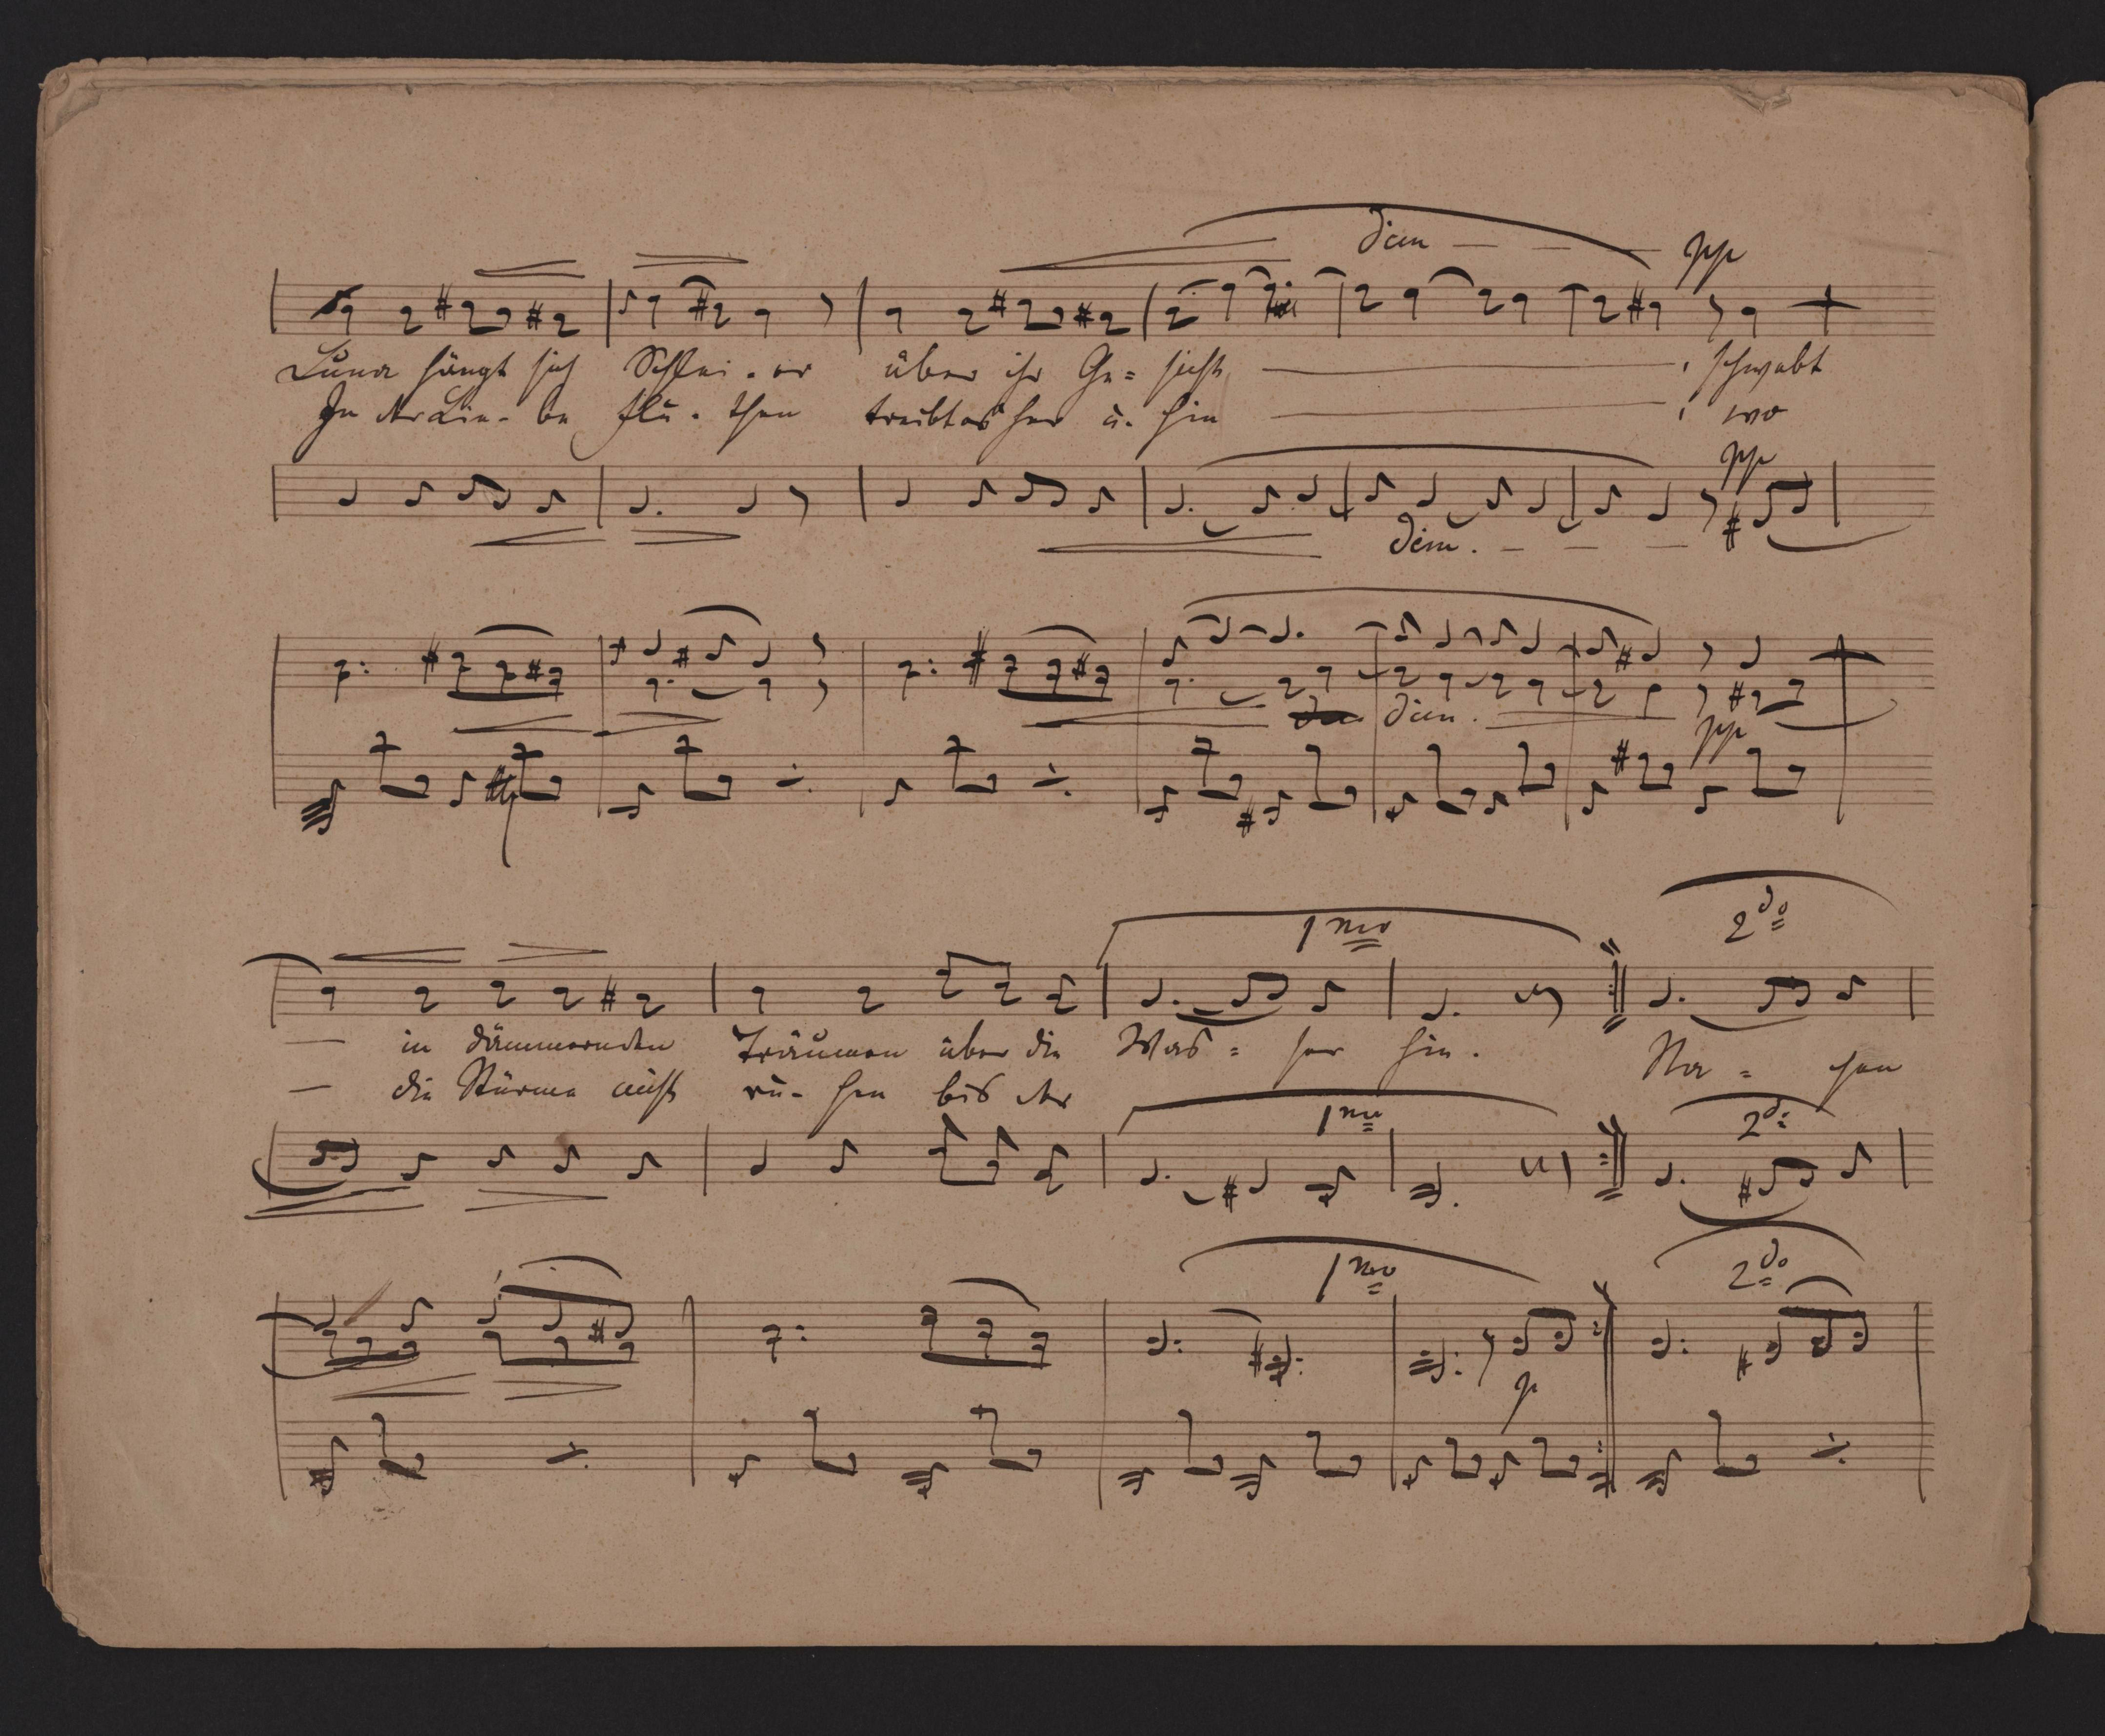 dim
pp
Luna hängt sich Schlei - er über ihr Ge = sicht, schwebt
In der Lie - be Flu - then treibt es her u. hin, wo
pp
dim. - - -
dim.
pp
1mo
2do
— in dämmernden Träumen über die Was = ser hin. Na = chen
— die Stürme nicht ru - hen bis der
1mo
2do
1mo
2do
p